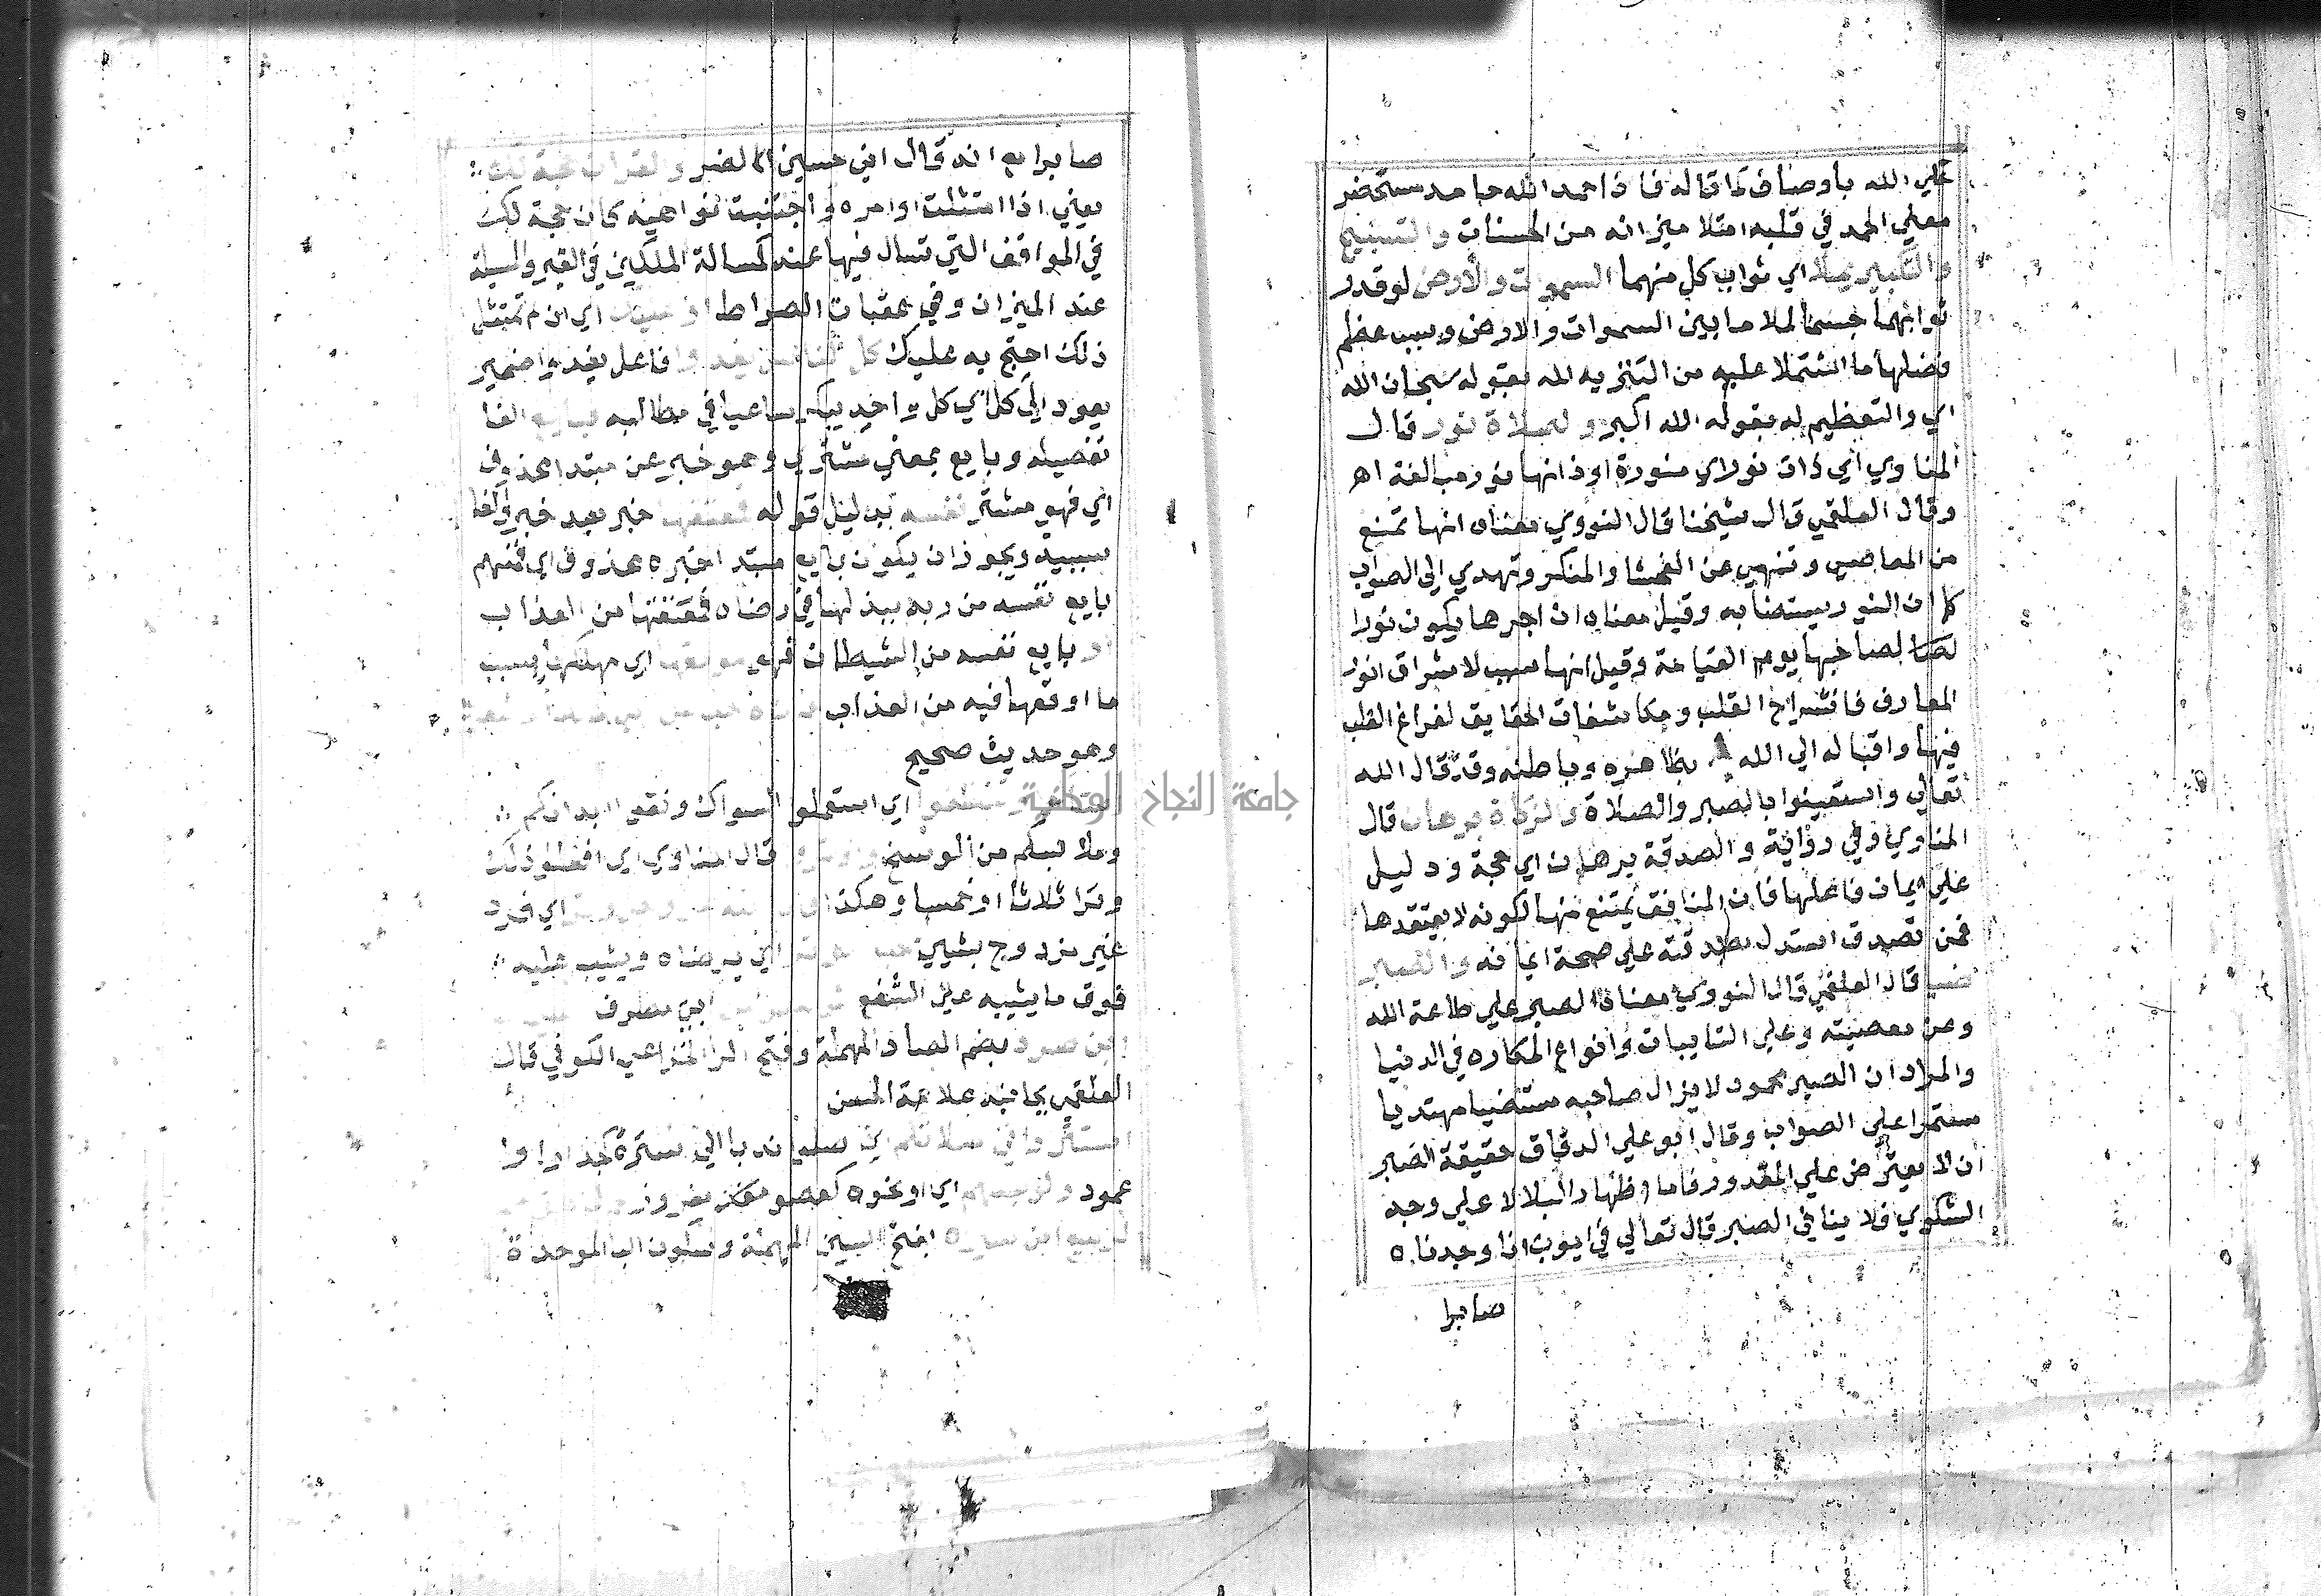 علي الله باوصاف كما قاله فاذا حمد الله حامد مستحضر
معني الحمد في قلبه امتلا ميزانه من الحسنات والتسبيح
والتكبير يملا اي ثواب كل منهما السموات والارض لو قدر
ثوابهما جسما لملا ما بين السموات والارض وسبب عظم
فضلها ما اشتملا عليه من التنزيه لله بقوله سبحان الله
اي والتعظيم له بقوله الله اكبر ولصلاة نور قال
المناوي اي ذات نور اي منورة او ذاتها نور مبالغة اه
وقال العلقمي قال شيخنا قال النووي معناه انها تمنع
من المعاصي وتنهي عن الفحشا والمنكر وتهدي الي الصواب
كما ان النور يستضا به وقيل معناه ان اجرها يكون نورا
لصاحبها يوم القيامة وقيل انها سبب لاشراق انوار
المعارف فانشراح القلب ومكاشفات الحقايق لفراغ القلب
فيها واقباله الي الله بظاهره وباطنه وقد قال الله
تعالي واستعينوا بالصبر والصلاة والزكاة برهان قال
المناوي وفي رواية والصدقة برهان اي حجة ودليل
علي ايمان فاعلها فان المنافق يمتنع منها لكونه لا يعتقدها
فمن تصدق استدل بصدقته علي صحة ايمانه والصبر
ضيا قال العلقمي قال النووي معناه الصبر علي طاعة الله
وعن معصيته وعلي النايبات وانواع المكاره في الدنيا
والمراد ان الصبر محمود لا يزال صاحبه مستضيا مهتديا
مستمرا علي الصواب وقال ابو علي الدقاق حقيقة الصبر
ان لا يعترض علي المقدور فاما اظهار البلا لا علي وجه
الشكوي فلا ينافي الصبر قال تعالي في ايوب انا وجدناه
صابرا
صابرا مع انه قال اني مسني الضر والقران حجة لك
يعني اذا امتثلت اوامره واجتنبت نواهيه كان حجة لك
في المواقف التي تسال فيها عند كمسالة الملكين في القبر والمسيلة
عند الميزان وفي عقبات الصراط او عليك اي ان لم تمتثل
ذلك احتج به عليك كل الناس يغدوا فاعل يغدوا ضمير
يعود الي كل اي كل واحد يبكر ساعيا في مطالبه فبايع الفا
تفصيلية وبايع بمعني مشتري وهو خبر عن مبتدا محذوف
اي فهو مشتر نفسه بدليل قوله فمعتقها خبر بعد خبر والفا
سببية ويجوز ان يكون بايع مبتدا خبره محذوف اي فمنهم
بايع نفسه من ربه ببذلها في رضاه فمعتقها من العذاب
او بايع نفسه من الشيطان فهو موبقها اي مهلكها بسبب
ما اوقعها فيه من العذاب
وهو حديث صحيح
جامعة النجاح الوطنية
اي استعملوا السواك ونقوا ابدانكم
وملابسكم من الوسخ قال المناوي اي افعلوا ذلك
وترا ثلاثا او خمسا وهكذا اي فرد
غير مزدوج بشيي اي يرضاه ويثيب عليه
فوق ما يثيبه علي الشفع بن مطرف
بن صرد بضم الصاد المهملة وفتح الرا الخزاعي الكوفي قال
العلقمي بجانبه علامة الحسن
استتروا في صلاتكم اي صلوا ندبا الي سترة كجدار او
عمود اي او نحوه كعصو مغروز
الربيع ابن سبرة بفتح السين المهملة وسكون البا الموحدة